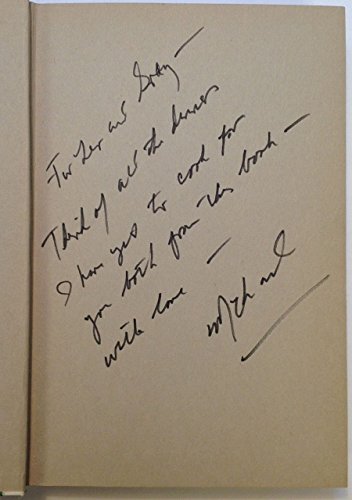 For Lex and
Think of all the dinners
I have yet to cook for
you both from this book —
with love —
Michael